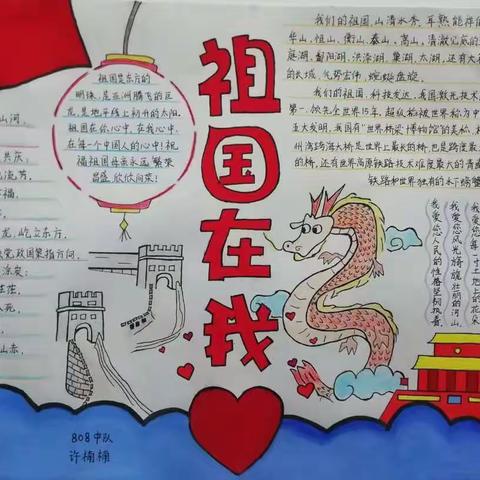 山河,
共庆:
流芳,
福,
龙,屹立东方,
党政国策指方向,
山赤,
祖国是东方的
明珠,是亚洲腾飞的巨
龙,是地平线上初升的太阳.
祖国在你心中,在我心中,
在每一个中国人的心中!祝
福祖国母亲永远繁荣
昌盛,欣欣向荣!
祖国在我
我们的祖国,山清水秀,耳熟能详的
华山,恒山,衡山,泰山,嵩山,清澈见底的
庭湖,鄱阳湖,洪泽湖,巢湖,太湖,还有大
的长城,气势宏伟,蜿蜒盘旋.
我们的祖国,科技发达,我国激光技术
第一,领先全世界15年,超级稻被世界称为中
五大发明,我国有"世界桥梁博物馆"的美称,杭
州湾跨海大桥是世界上最长的桥,也是跨度最
的桥,还有世界高原铁路技术难度最大的青藏
铁路和世界独有的水下螃蟹
我爱您每一寸土地上的花朵
我爱您风光旖旎壮丽的河山,
我爱您人民的性格坚韧执着.
808中队
许楠楠